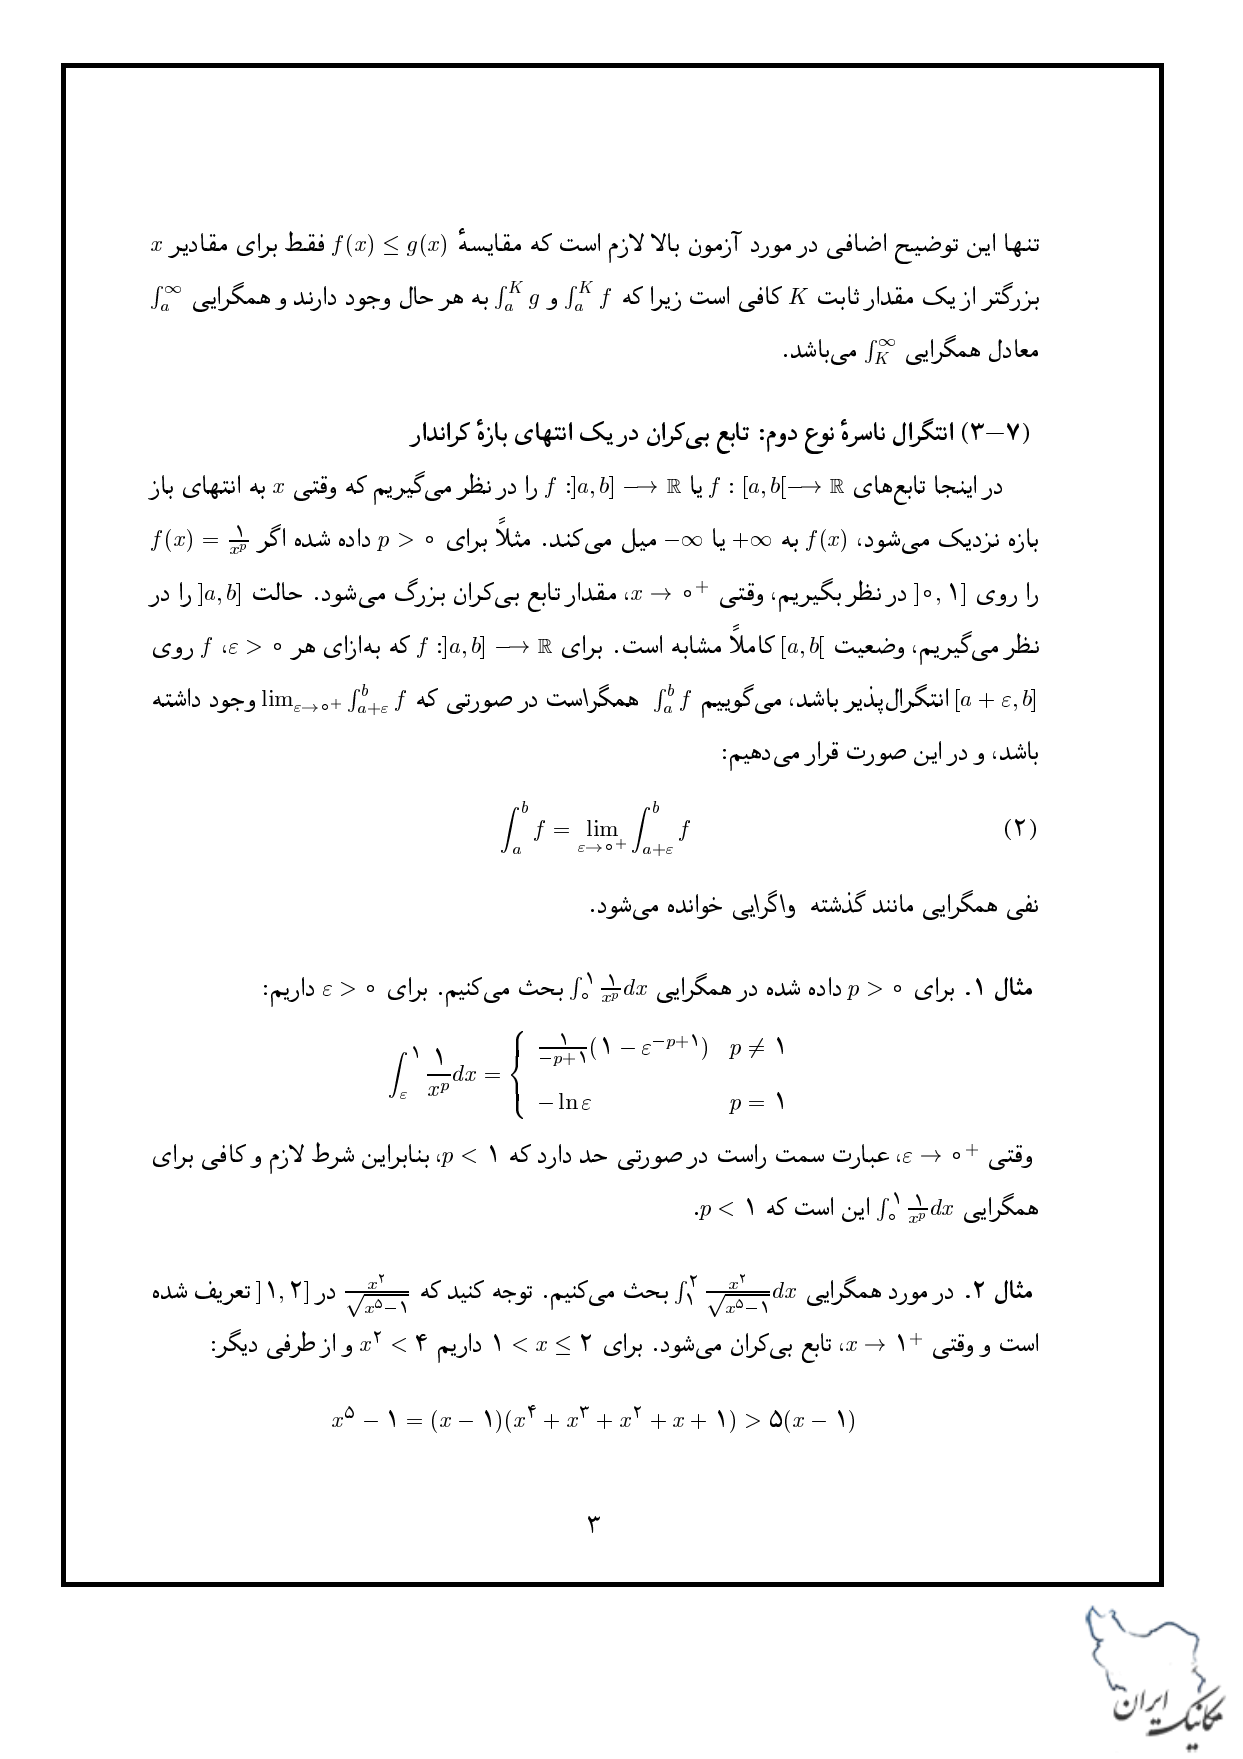 تنها این توضیح اضافی در مورد آزمون بالا لازم است که مقایسهٔ f(x) ≤ g(x) فقط برای مقادیر x
بزرگتر از یک مقدار ثابت K کافی است زیرا که ∫_a^K f و ∫_a^K g به هر حال وجود دارند و همگرایی ∫_a^∞
معادل همگرایی ∫_K^∞ می‌باشد.
(۷–۳) انتگرال ناسرهٔ نوع دوم: تابع بی‌کران در یک انتهای بازهٔ کراندار
در اینجا تابع‌های f : [a, b[⟶ ℝ یا f :]a, b] ⟶ ℝ را در نظر می‌گیریم که وقتی x به انتهای باز
بازه نزدیک می‌شود، f(x) به +∞ یا −∞ میل می‌کند. مثلاً برای p > ۰ داده شده اگر f(x) = ۱/x^p
را روی ]۰, ۱] در نظر بگیریم، وقتی x → ۰⁺، مقدار تابع بی‌کران بزرگ می‌شود. حالت ]a, b] را در
نظر می‌گیریم، وضعیت [a, b[ کاملاً مشابه است. برای f :]a, b] ⟶ ℝ که به‌ازای هر ε > ۰، f روی
[a + ε, b] انتگرال‌پذیر باشد، می‌گوییم ∫_a^b f همگراست در صورتی که lim_{ε→۰⁺} ∫_{a+ε}^b f وجود داشته
باشد، و در این صورت قرار می‌دهیم:
(۲) ∫_a^b f = lim_{ε→۰⁺} ∫_{a+ε}^b f
نفی همگرایی مانند گذشته واگرایی خوانده می‌شود.
مثال ۱. برای p > ۰ داده شده در همگرایی ∫_۰^۱ ۱/x^p dx بحث می‌کنیم. برای ε > ۰ داریم:
∫_ε^۱ ۱/x^p dx = { ۱/(−p+۱) (۱ − ε^{−p+۱}) p ≠ ۱
− ln ε p = ۱
وقتی ε → ۰⁺، عبارت سمت راست در صورتی حد دارد که p < ۱، بنابراین شرط لازم و کافی برای
همگرایی ∫_۰^۱ ۱/x^p dx این است که p < ۱.
مثال ۲. در مورد همگرایی ∫_۱^۲ x^۲/√(x^۵−۱) dx بحث می‌کنیم. توجه کنید که x^۲/√(x^۵−۱) در ]۱, ۲] تعریف شده
است و وقتی x → ۱⁺، تابع بی‌کران می‌شود. برای ۱ < x ≤ ۲ داریم x^۲ < ۴ و از طرفی دیگر:
x^۵ − ۱ = (x − ۱)(x^۴ + x^۳ + x^۲ + x + ۱) > ۵(x − ۱)
۳
مکانیک ایران